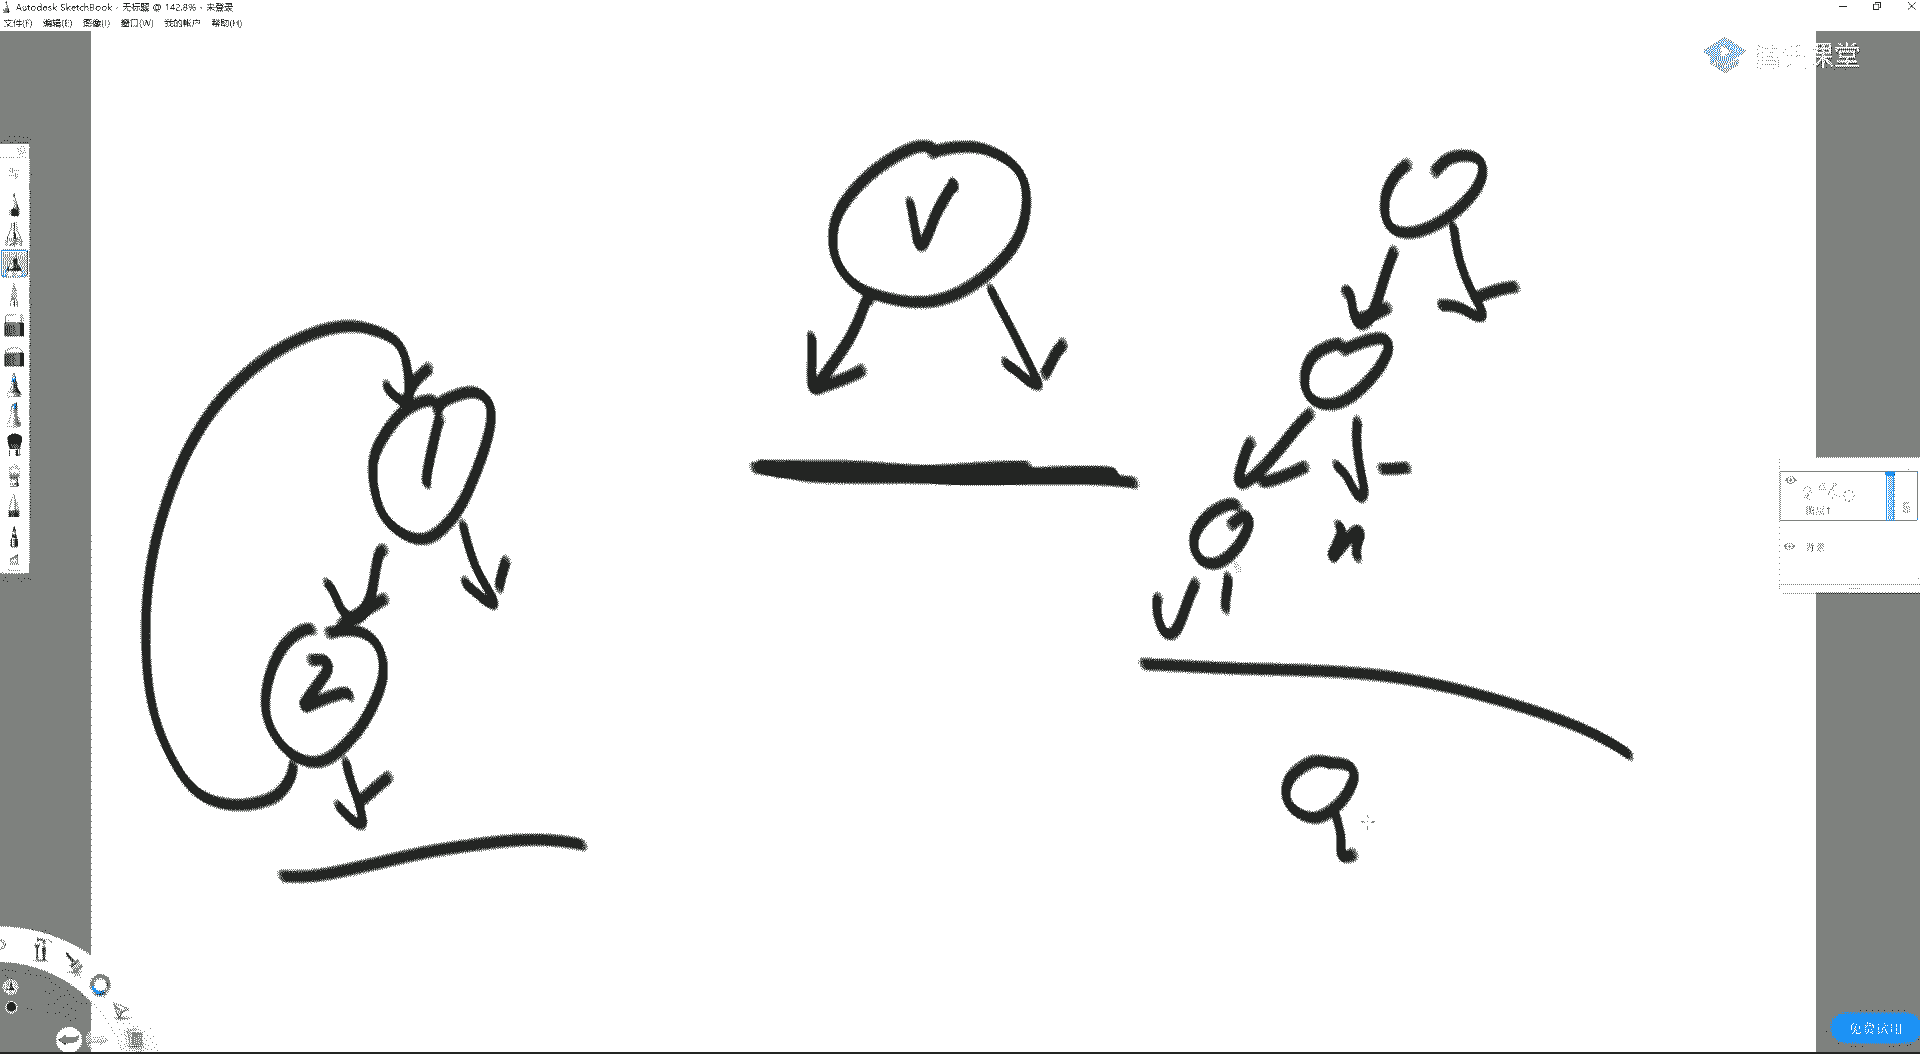 Autodesk SketchBook - 无标题 @ 142.8% - 未登录
文件(F) 编辑(E) 图像(I) 窗口(W) 我的帐户 帮助(H)
腾讯课堂
V
1
2
n
图层1
背景
免费试用